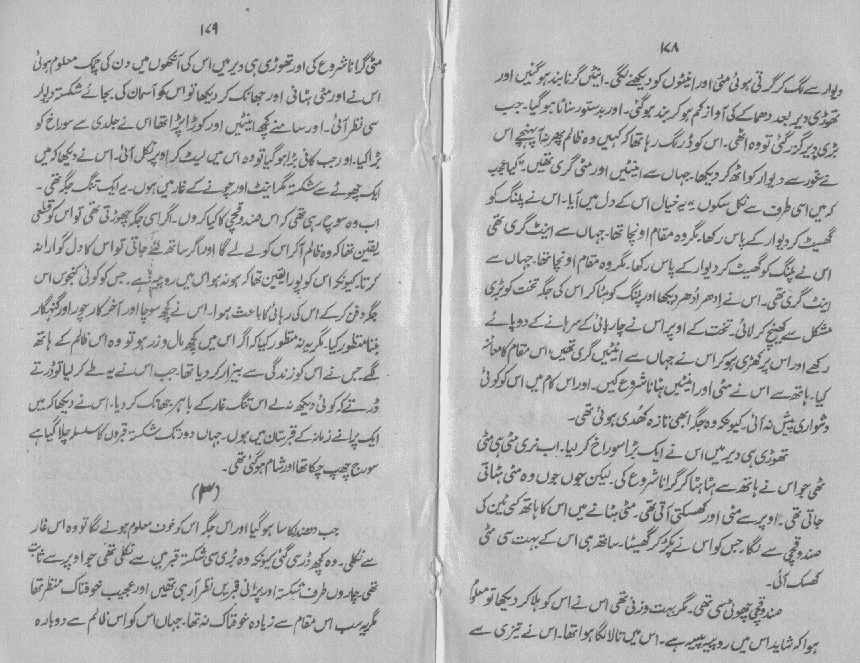 ۱۷۸
دیوار سے لگ کر گرتی ہوئی مٹی اور اینٹوں کو دیکھنے لگی۔ اینٹیں گرنا بند ہو گئیں اور
تھوڑی دیر بعد دھماکے کی آواز کم ہو کر بند ہو گئی۔ اور بدستور سناٹا ہو گیا۔ جب
بڑی دیر گزر گئی تو وہ اٹھی۔ اس کو ڈر لگ رہا تھا کہ کہیں وہ ظالم پھر نہ آ پہنچے اس
نے غور سے دیوار کو اٹھ کر دیکھا۔ جہاں سے اینٹیں اور مٹی گری تھیں۔ "کیا عجب
کہ میں اسی طرف سے نکل سکوں" یہ خیال اس کے دل میں آیا۔ اس نے پلنگ کو
گھسیٹ کر دیوار کے پاس رکھا۔ مگر وہ مقام اونچا تھا۔ جہاں سے اینٹ گری تھی
اس نے پلنگ کو گھسیٹ کر دیوار کے پاس رکھا۔ مگر وہ مقام اونچا تھا۔ جہاں سے
اینٹ گری تھی۔ اس نے ادھر ادھر دیکھا اور پلنگ کو ہٹا کر اس کی جگہ تخت کو بڑی
مشکل سے کھینچ کر لائی۔ تخت کے اوپر اس نے چارپائی کے سرہانے کے دو پائے
رکھے اور اس پر کھڑی ہو کر اس نے جہاں سے اینٹیں گری تھیں اس مقام کا معائنہ
کیا۔ ہاتھ سے اس نے مٹی اور اینٹیں ہٹانا شروع کیں۔ اور اس کام میں اس کو کوئی
دشواری پیش نہ آئی۔ کیونکہ وہ جگہ ابھی تازہ کھُدی ہوئی تھی۔
تھوڑی ہی دیر میں اس نے ایک بڑا سوراخ کر لیا۔ اب نری مٹی ہی مٹی
تھی جو اس نے ہاتھ سے ہٹا ہٹا کر گرانا شروع کی۔ لیکن جوں جوں وہ مٹی ہٹاتی
جاتی تھی۔ اوپر سے مٹی اور کھسکتی آتی تھی۔ مٹی ہٹانے میں اس کا ہاتھ کسی ٹین کی
صندوقچی سے لگا۔ جس کو اس نے پکڑ کر گھسیٹا۔ ساتھ ہی اس کے بہت سی مٹی
کھسک آئی۔
صندوقچی چھوٹی سی تھی۔ مگر بہت وزنی تھی اس نے اس کو ہلا کر دیکھا تو معلوم
ہوا کہ شاید اس میں روپیہ پیسہ ہے۔ اس میں تالا لگا ہوا تھا۔ اس نے تیزی سے
۱۷۹
مٹی گرانا شروع کی اور تھوڑی ہی دیر میں اس کی آنکھوں میں دن کی چمک معلوم ہوئی
اس نے اور مٹی ہٹائی اور جھانک کر دیکھا تو اس کو آسمان کی بجائے شکستہ دیوار
سی نظر آئی۔ اور سامنے کچھ اینٹیں اور کوڑا پڑا تھا اس نے جلدی سے سوراخ کو
بڑا کیا۔ اور جب کافی بڑا ہو گیا تو وہ اس میں لیٹ کر اوپر نکل آئی۔ اس نے دیکھا کہ میں
ایک چھوٹے سے شکستہ مگر اینٹ اور چونے کے غار میں ہوں۔ یہ ایک تنگ جگہ تھی۔
اب وہ سوچ رہی تھی کہ اس صندوقچی کا کیا کروں۔ اگر اسی جگہ چھوڑتی تھی تو اس کو قطعی
یقین تھا کہ وہ ظالم آ کر اس کو لے لے گا اور اگر ساتھ لئے جاتی تو اس کا دل گوارا نہ
کرتا۔ کیونکہ اس کو پورا یقین تھا کہ ہو نہ ہو اس میں روپیہ ہے۔ جس کو کوئی کنجوس اس
جگہ دفن کر کے اس کی رہائی کا باعث ہوا۔ اس نے کچھ سوچا اور آخر کار چور اور گنہگار
بننا منظور کیا۔ مگر یہ نہ منظور کیا کہ اگر اس میں کچھ مال و زر ہو تو وہ اس ظالم کے ہاتھ
لگے۔ جس نے اس کو زندگی سے بیزار کر دیا تھا۔ جب اس نے یہ طے کر لیا تو ڈرتے
ڈرتے کہ کوئی دیکھ نہ لے اس تنگ غار کے باہر جھانک کر دیا۔ اس نے دیکھا کہ میں
ایک پرانے زمانہ کے قبرستان میں ہوں۔ جہاں دور تک شکستہ قبروں کا سلسلہ چلا گیا ہے
سورج چھپ چکا تھا اور شام ہو گئی تھی۔
(۳)
جب دھندلکا سا ہو گیا اور اس جگہ اس کو خوف معلوم ہونے لگا تو وہ اس غار
سے نکلی۔ وہ کچھ ڈر سی گئی کیونکہ وہ بڑی سی شکستہ قبر میں سے نکلی تھی جو اوپر سے ثابت
تھی۔ چاروں طرف شکستہ اور پرانی قبریں نظر آ رہی تھیں اور عجیب خوفناک منظر تھا
مگر یہ سب اس مقام سے زیادہ خوفناک نہ تھا۔ جہاں اس کو اس ظالم سے دوبارہ